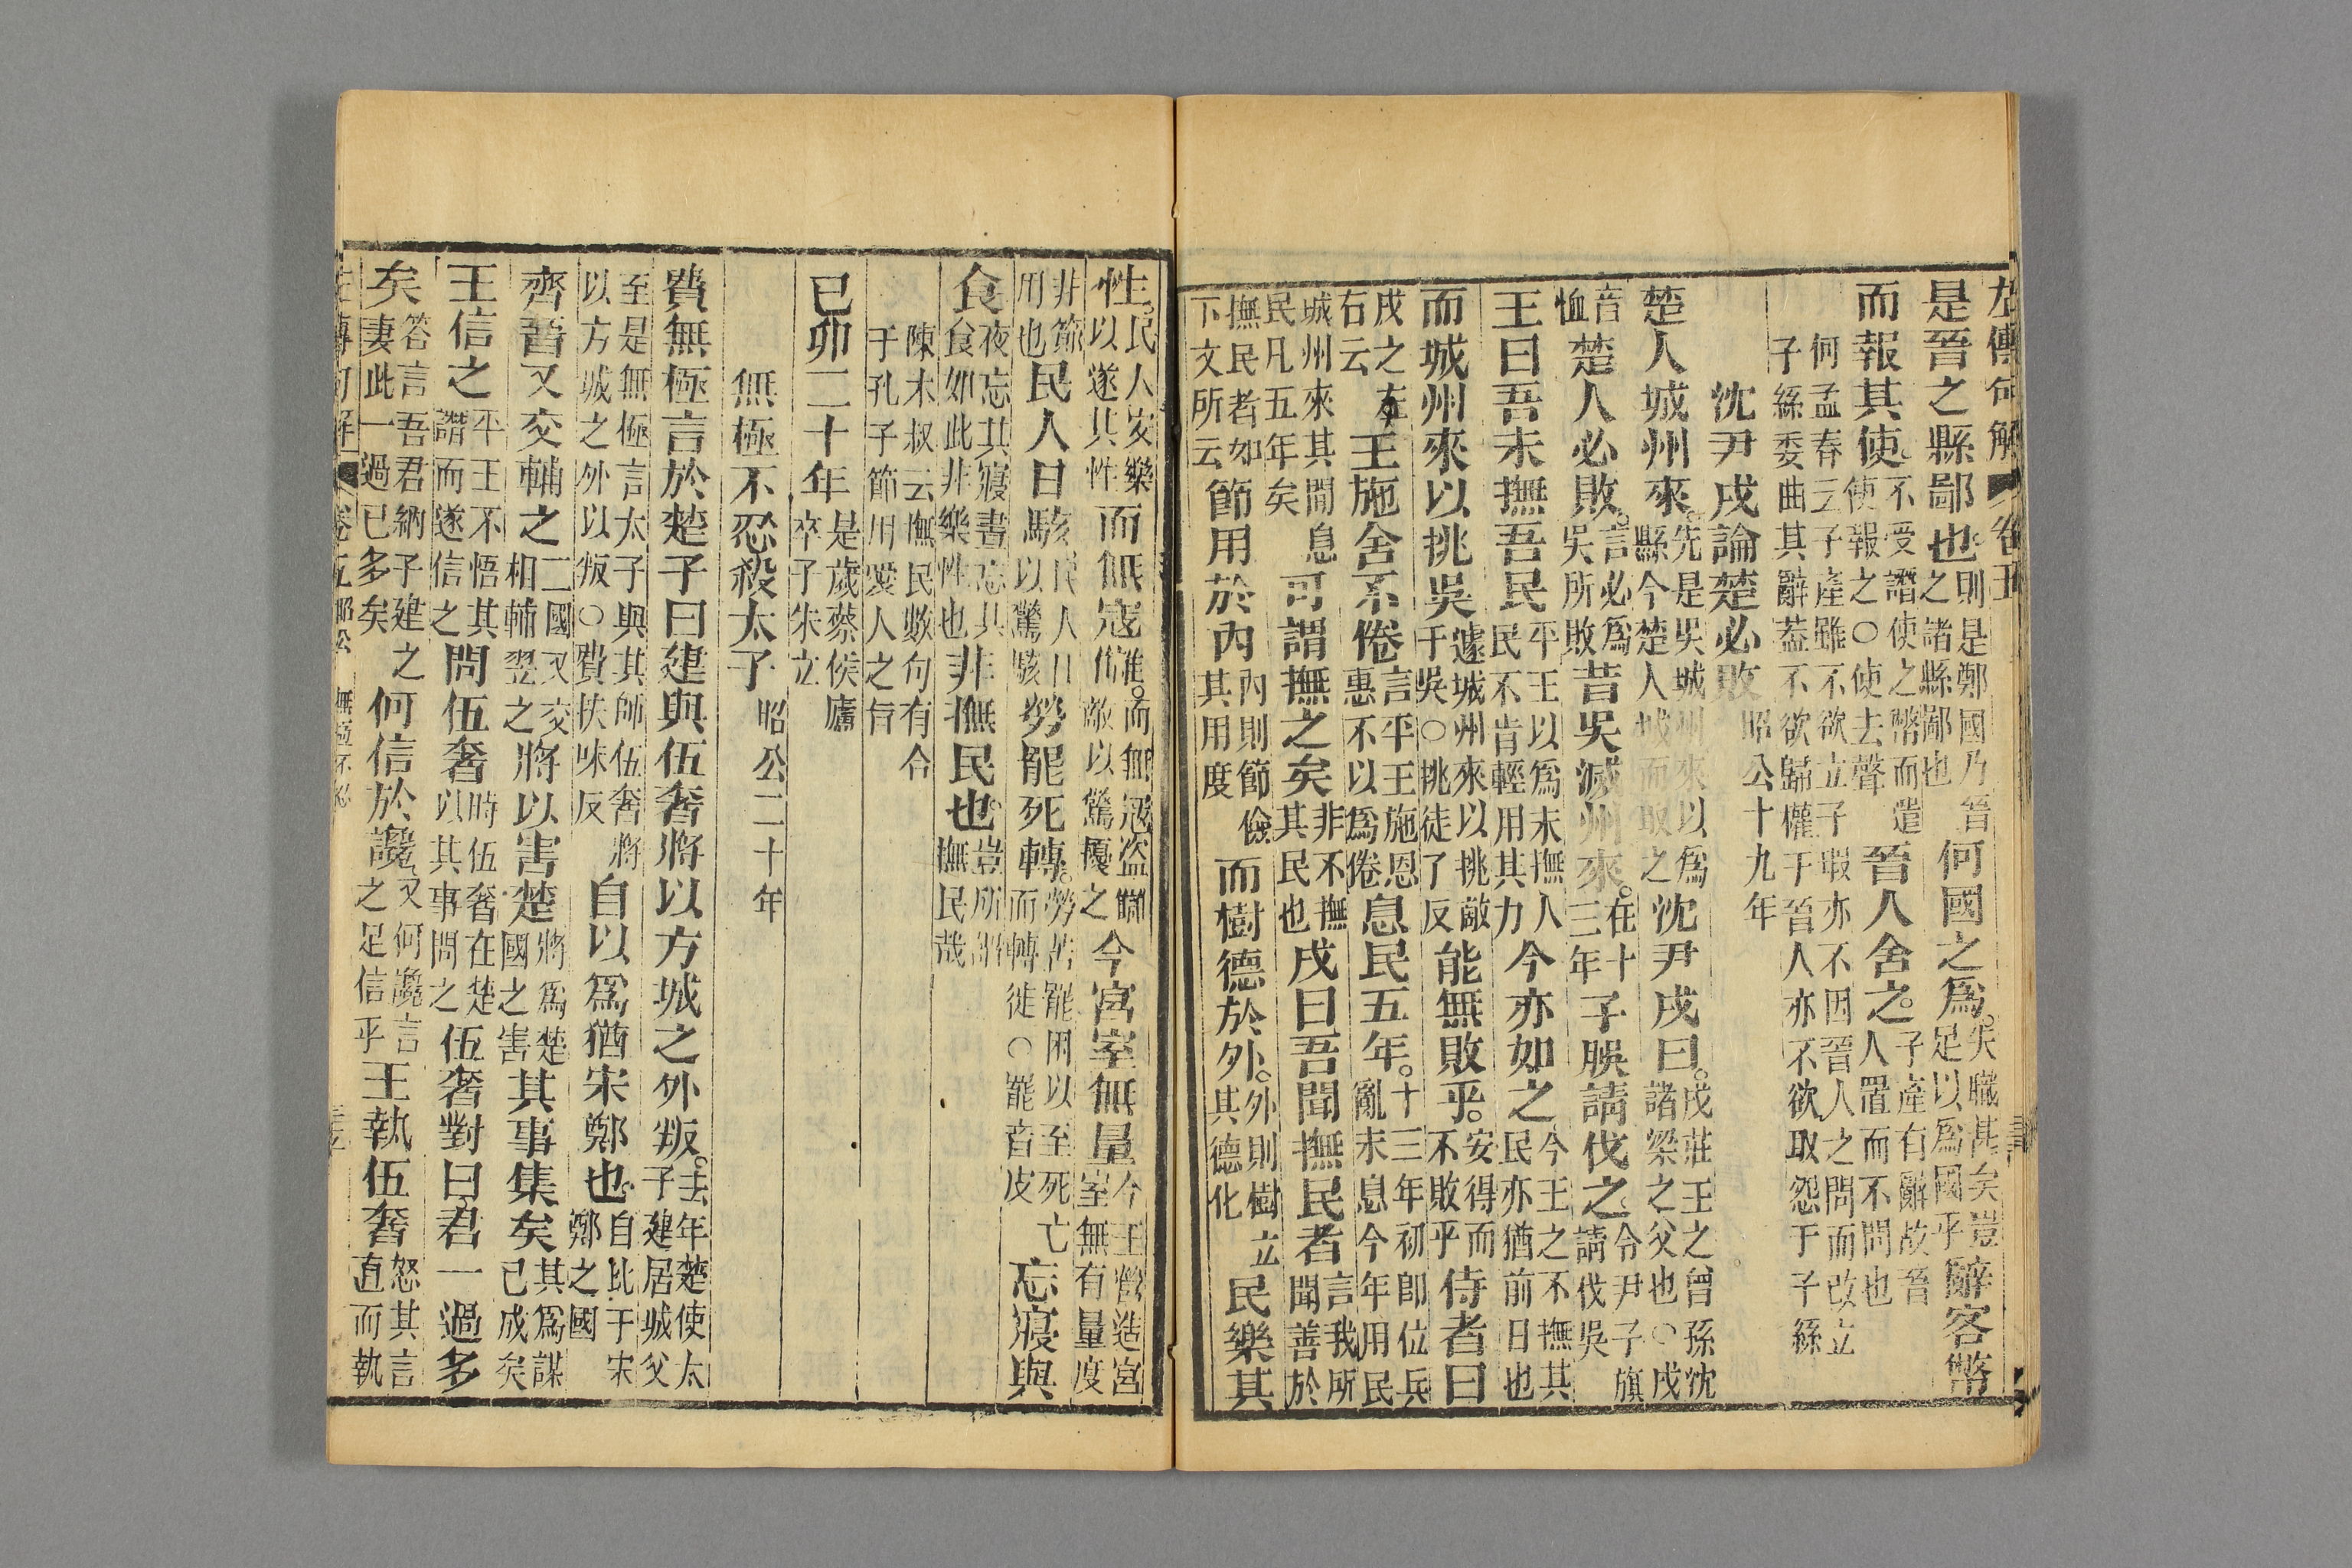 左傳句解 卷五
是晉之縣鄙也則是鄭國乃晉之諸縣鄙也何國之爲失職甚矣豈足以爲國乎辭客幣
而報其使不受譖使之幣而遣使報之○使去聲晉人舍之子產有辭故晉人置而不問也
何孟春云子產雖不欲立子瑕亦不因晉人之問而改立
子絲委曲其辭葢不欲歸權于晉人亦不欲取怨于子絲
沈尹戌論楚必敗昭公十九年
楚人城州來先是吳城州來以爲縣今楚人城而取之沈尹戌曰戌莊王之曾孫沈諸梁之父也○戌
音恤楚人必敗言必爲吳所敗昔吳滅州來在十三年子旗請伐之令尹子旗請伐吳
王曰吾未撫吾民平王以爲未撫人民不肯輕用其力今亦如之今王之不撫其民亦猶前日也
而城州來以挑吳遽城州來以挑敵于吳○挑徒了反能無敗乎安得而不敗乎侍者曰
戌之左右云王施舍不倦言平王施恩惠不以爲倦息民五年十三年初即位兵亂未息今年用民
城州來其間息民凡五年矣可謂撫之矣非不撫其民也戌曰吾聞撫民者言我所聞善於
撫民者如下文所云節用於內內則節儉其用度而樹德於外外則樹立其德化民樂其
性民人安樂以遂其性而無寇讎而無冦盗讎敵以驚擾之今宮室無量今王營造宮室無有量度
非節用也民人日駭民人日以驚駭勞罷死轉勞苦罷困以至死亡而轉徙○罷音皮忘寢與
食夜忘其寢晝忘其食如此非樂性也非撫民也豈所謂撫民哉
陳木叔云撫民數句有合
于孔子節用愛人之旨
己卯二十年是歲蔡侯廬卒子朱立
無極不忍殺太子昭公二十年
費無極言於楚子曰建與伍奢將以方城之外叛去年楚使太子建居城父
至是無極言太子與其師伍奢將以方城之外以叛○費扶味反自以爲猶宋鄭也自比于宋鄭之國
齊晉又交輔之二國又交相輔翌之將以害楚將爲楚國之害其事集矣其爲謀已成矣
王信之平王不悟其譖而遂信之問伍奢時伍奢在楚以其事問之伍奢對曰君一過多
矣答言吾君納子建之妻此一過已多矣何信於讒又何讒言之足信乎王執伍奢怒其言直而執